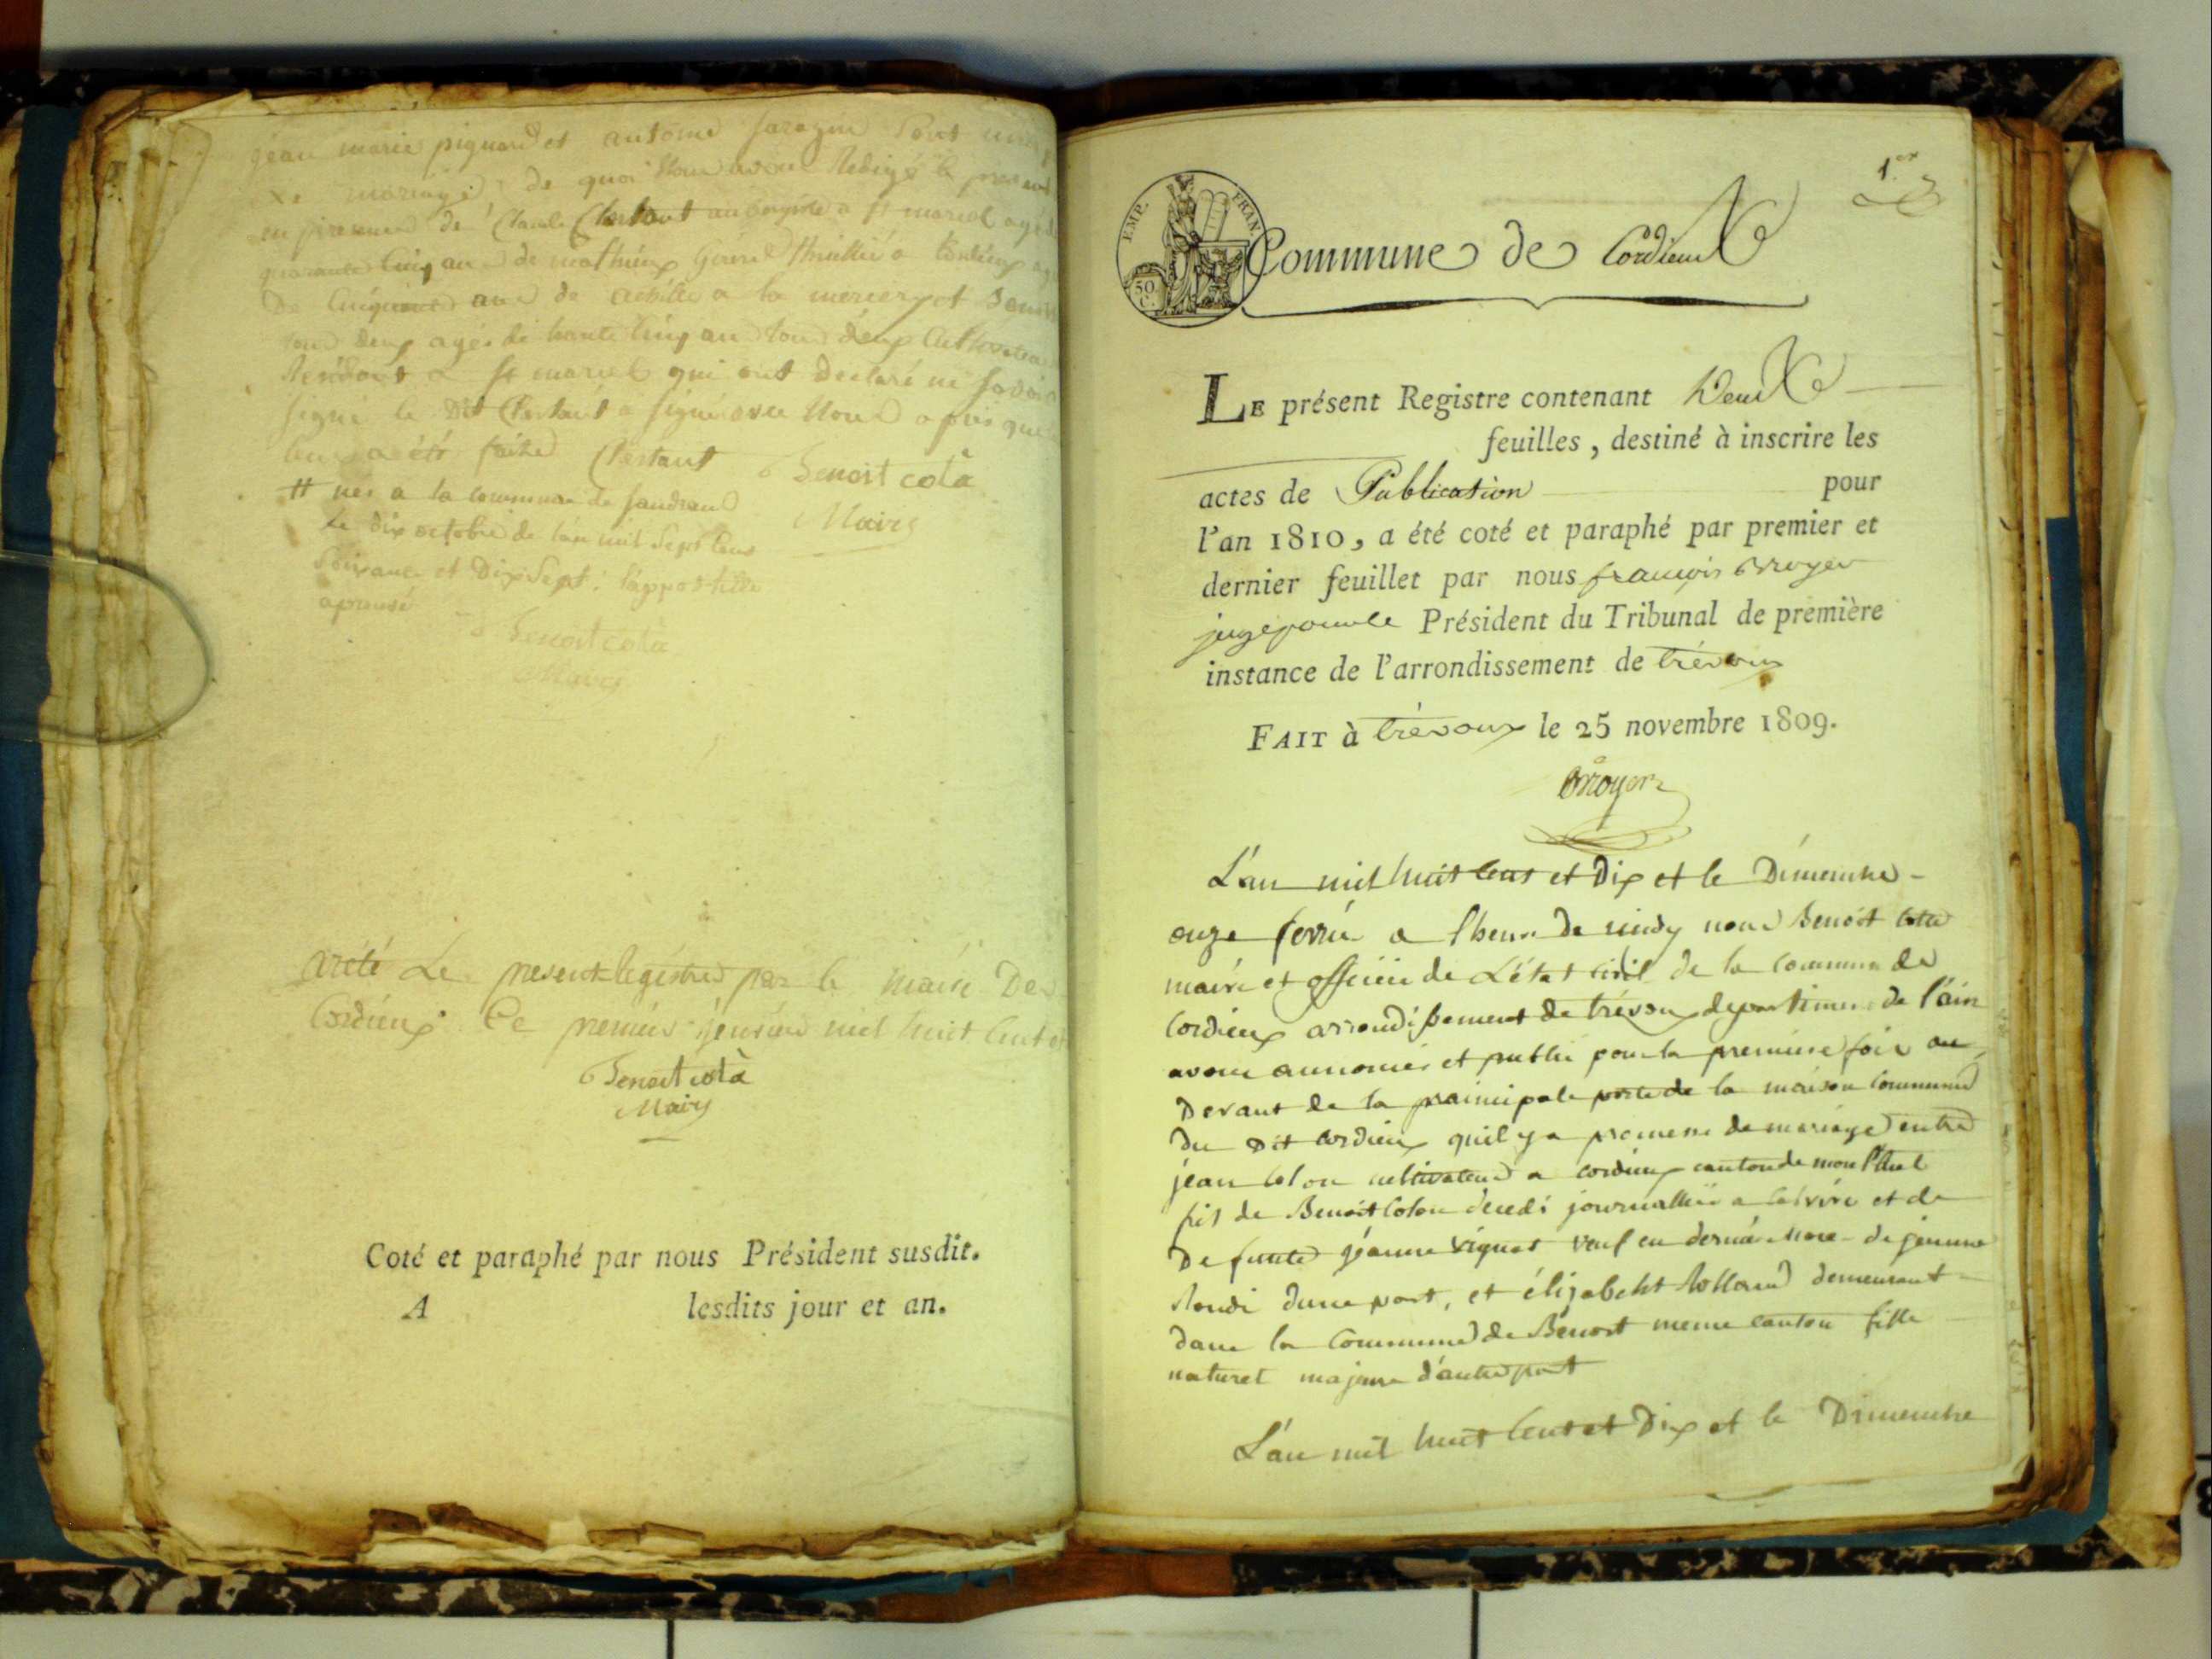 jean marie pignard et antoine sarazin sont unis
mariage de quoi nous avons Redigé le present
en presence de Claude Chertant aubergiste a st marcel agé de
quarante cinq an de mathieux a Cordieux
De Cinquante ans de a la et Benoit
tous deux agés de trante cinq an tous deux Cultivateur
Résidant a st marcel qui ont declaré ne savoir
signé le Dit Chertant a signé avec Nous apris que
leur a été faite Chertant Benoit cotà
Maire
# née a la commune de sandrans
le dix octobre de l'an mil sept cens
soixante et Dix Sept : l'appostille
aprouvé
Benoit cotà
Maire
arêté Le present registre par le maire De
Cordieux Ce premier jenvier mil huit Cent et
Benoit cotà
Maire
Coté et paraphé par nous Président susdit.
A lesdits jour et an.
1.er
EMP. FRAN.
50 C.
Commune de Cordieux
LE présent Registre contenant Deux
feuilles, destiné à inscrire les
actes de Publication pour
l'an 1810, a été coté et paraphé par premier et
dernier feuillet par nous françois Brroyer
juge pour le Président du Tribunal de première
instance de l'arrondissement de trévoux
FAIT à trévoux le 25 novembre 1809.
Brroyer
L'an mil huit Cens et Dix et le Dimenche
onze fevrié a l'heure de midy nous Benoit Cotta
maire et officier de L'état Civil de la commune de
Cordieux arrondissement de trévoux departiment de l'ain
avons annoncés et publié pour la premiere fois au
Devant de la praincipale porte de la maison Commune
du Dit Cordieux qu'il y a promesse de mariage entre
jean Colon cultivateur a Cordieux canton de mont luel
fils de Benoit Colon décedé journallier a et de
Defunte jéanne viguat veuf en derniére nore de jeanne
d'une part, et élizabeht Rolland demeurant
dans la Commune de Benost meme canton fille
naturel majeure d'autre part
L'an mil huit Cent et Dix et le Dimenche